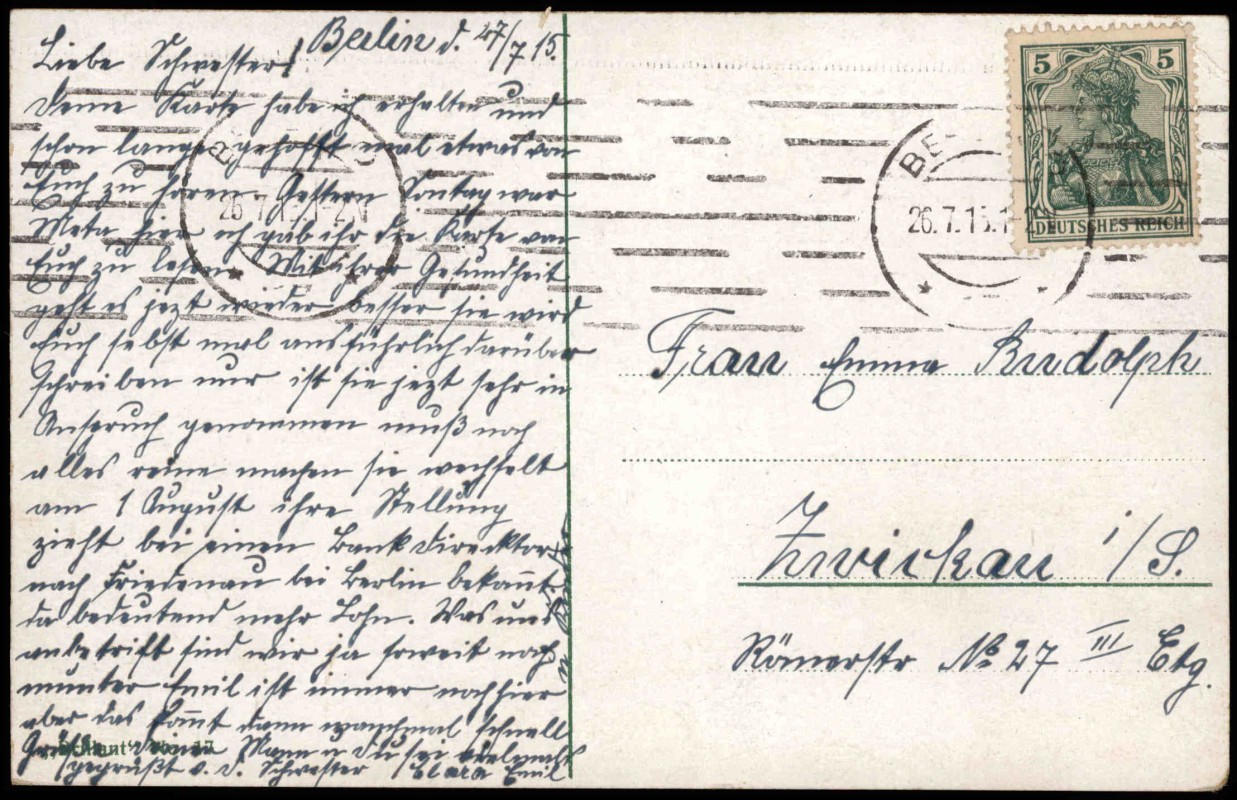 Berlin d. 27/7 15.
Liebe Schwester!
Deine Karte habe ich erhalten und
schon lange gehofft mal etwas von
Euch zu hören. Gestern Sontag war
Meta hier ich gab ihr die Karte von
Euch zu lesen. Mit ihrer Gesundheit
geht es jezt wieder besser sie wird
Euch selbst mal ausführlich darüber
schreiben nur ist sie jezt sehr in
Anspruch genommen muß noch
alles reine machen sie wechselt
am 1 August ihre Stellung
zieht bei einen Bankdirecktor
nach Friedenau bei Berlin bekomt
da bedeutend mehr Lohn. Was uns
anbetrift sind wir ja soweit noch
munter Emil ist immer noch hier
aber das komt dann manchmal schnell
Grüße Deinen Mann u Du sei vielmals
gegrüßt v. d. Schwester Clara Emil
5 5
DEUTSCHES REICH
26.7.15.1-2N
26.7.15.1-2N
Frau Emma Rudolph
Zwickau i/S.
Römerstr No 27 III Etg.